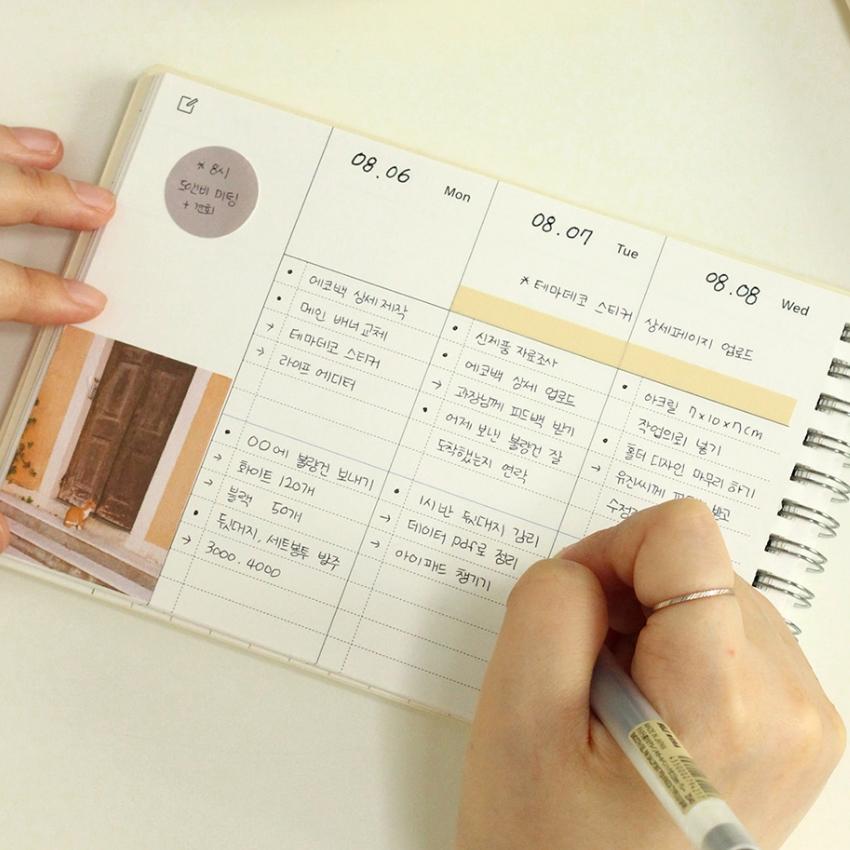 * 8시
5인비 미팅
+ 견회
08.06 Mon
• 에코백 상세 제작
• 메인 배너 교체
→ 테마데코 스티커
→ 라이프 에디터
• OO에 불량건 보내기
→ 화이트 120개
→ 블랙 50개
• 뒷대지, 세트봉투 발주
→ 3000. 4000
08.07 Tue
* 테마데코 스티커
• 신제품 자료조사
• 에코백 상세 업로드
→ 과장님께 피드백 받기
• 어제 보낸 불량건 잘
도착했는지 연락
• 1시반 뒷대지 감리
→ 데이터 pdf로 정리
→ 아이패드 챙기기
08.08 Wed
상세페이지 업로드
• 아크릴 7x10x7cm
작업의뢰 넣기
• 홀더 디자인 마무리 하기
→ 유진씨께